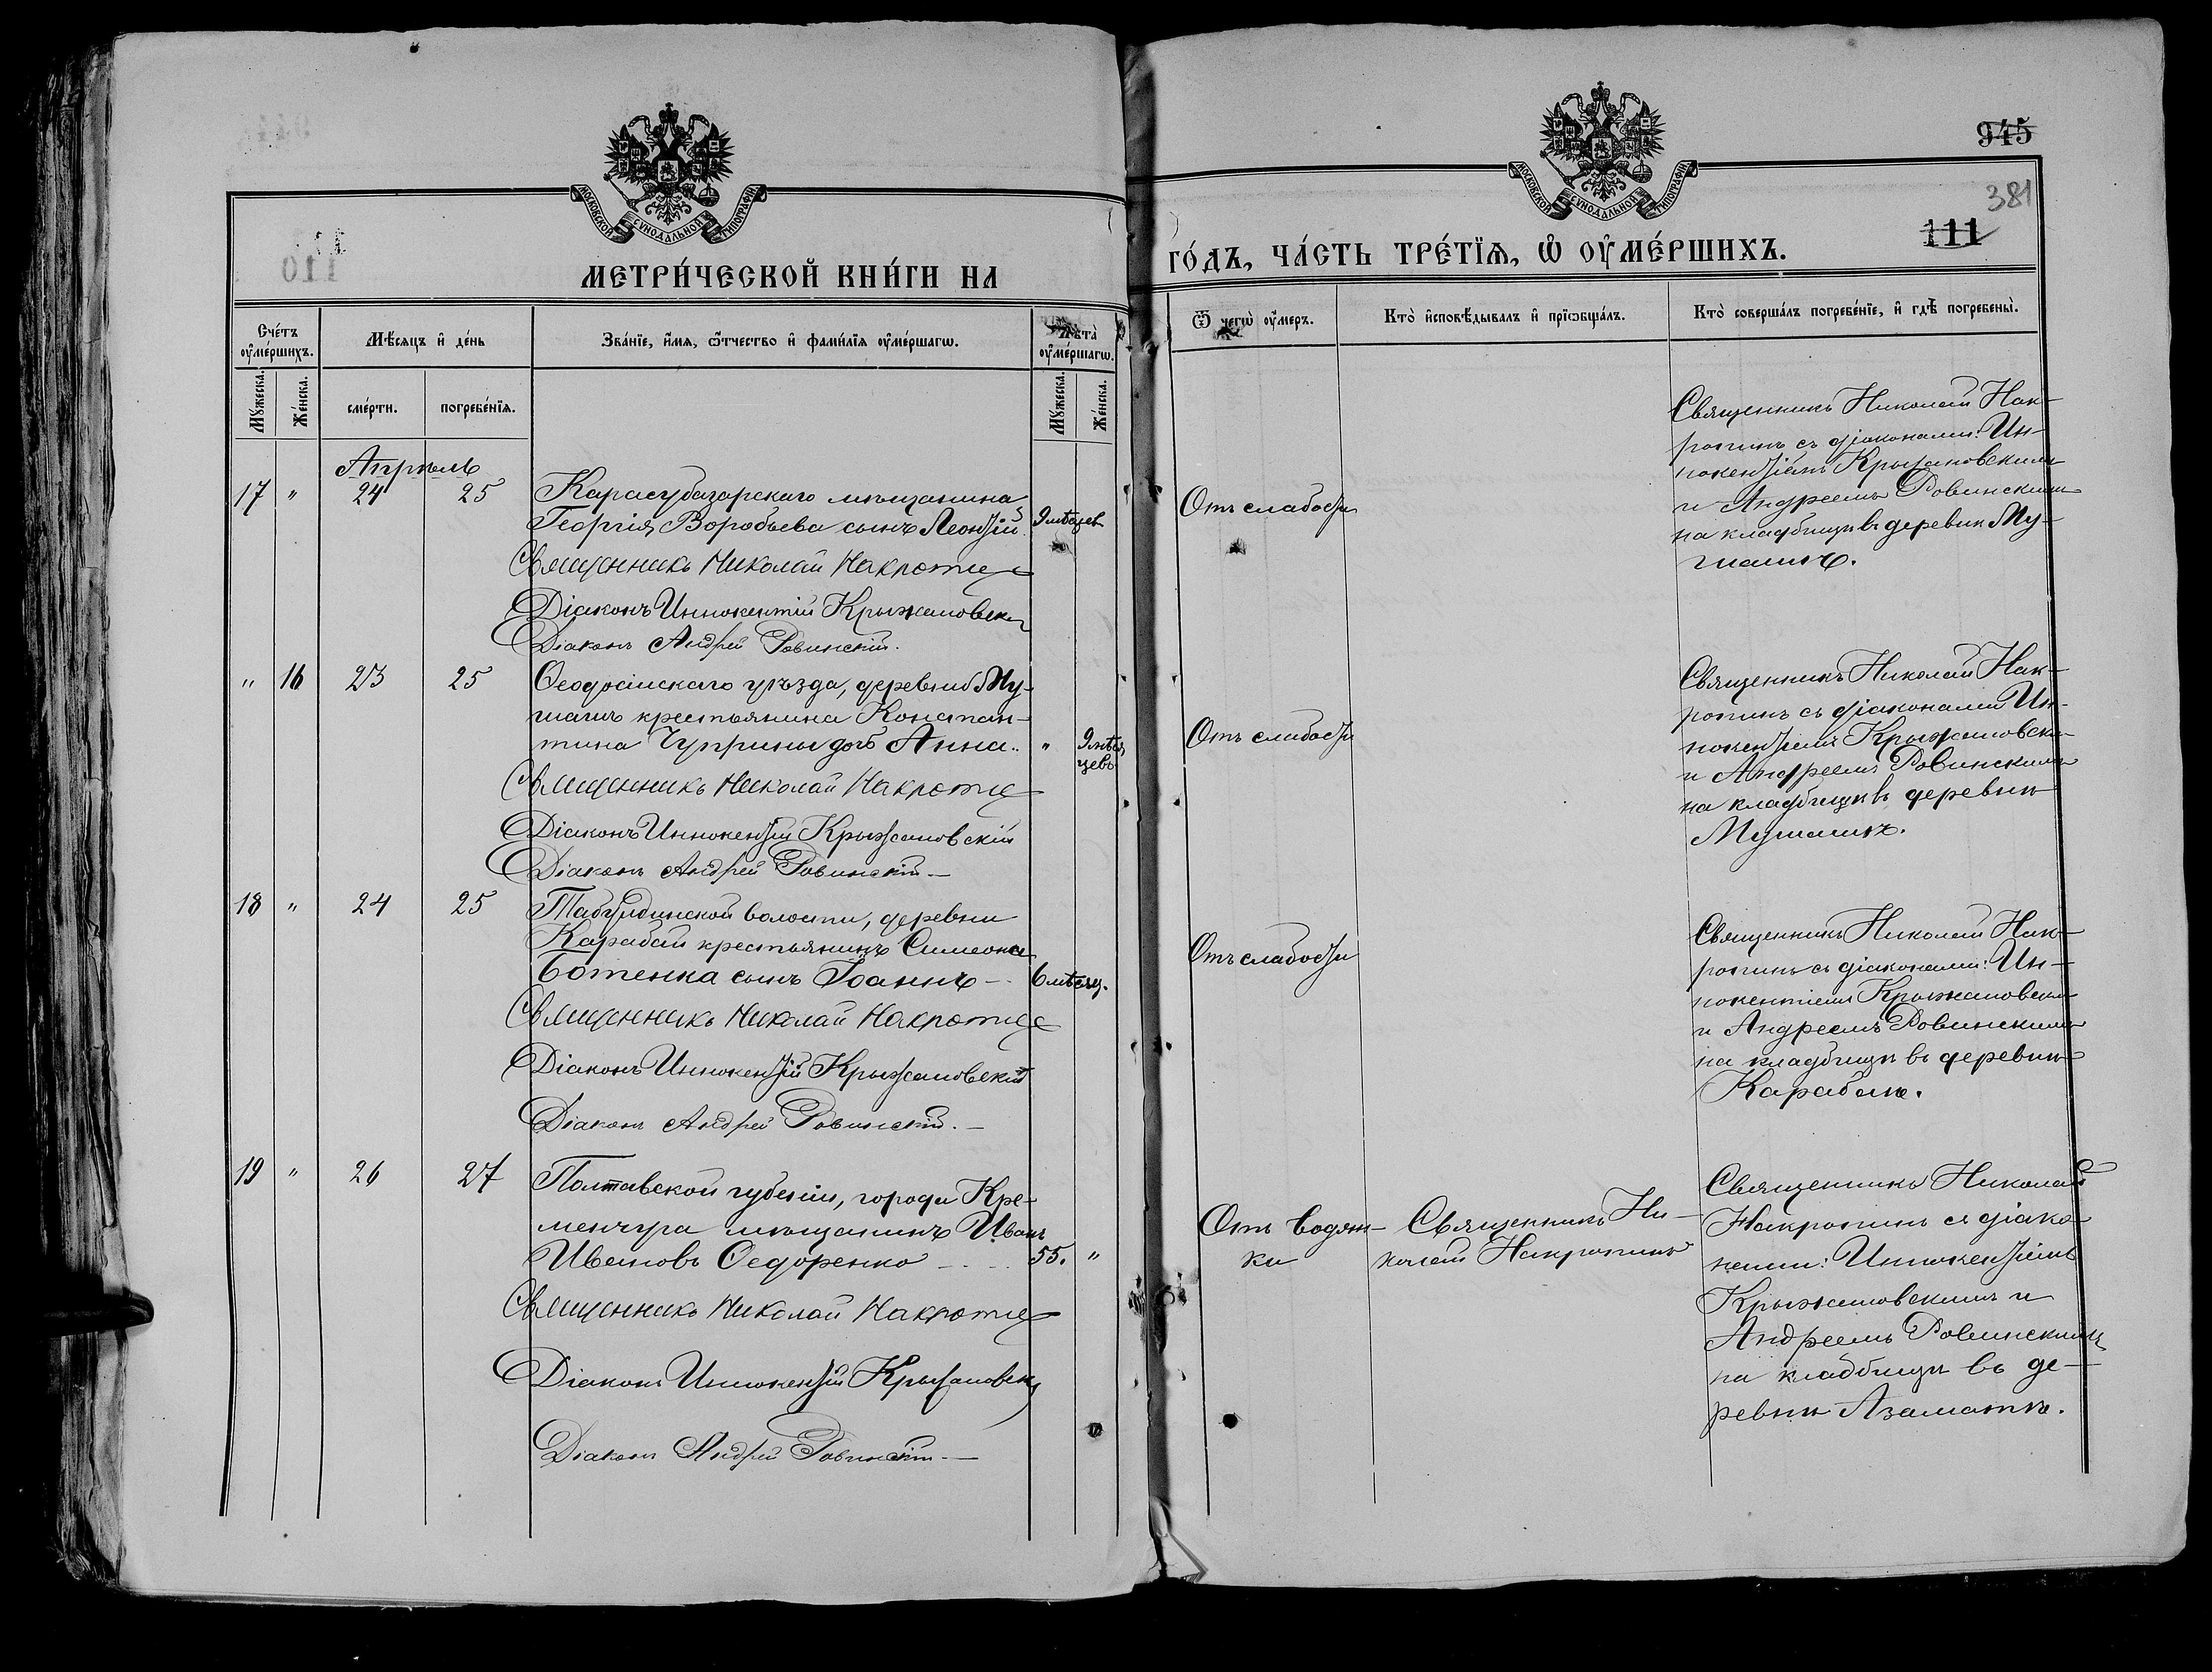 945
381
111
МОСКОВСКОЙ СѴНОДАЛЬНОЙ ТИПОГРАФІИ
МОСКОВСКОЙ СѴНОДАЛЬНОЙ ТИПОГРАФІИ
МЕТРИ́ЧЕСКОЙ КНИ́ГИ НА
ГО́ДЪ, ЧА́СТЬ ТРЕ́ТЇѦ, Ѡ҆ ОУ҆МЕ́РШИХЪ.
Сче́тъ оу҆ме́ршихъ.
Мѣ́сяцъ и҆ де́нь
Зва́нїе, и҆́мя, ѻ҆́тчество и҆ фами́лїя оу҆ме́ршагѡ.
Лѣта̀ оу҆ме́ршагѡ.
Ѿ чегѡ̀ оу҆́меръ.
Кто̀ и҆сповѣ́дывалъ и҆ прїѡбща́лъ.
Кто̀ соверша́лъ погребе́нїе, и҆ гдѣ̀ погребены̀.
Му́жеска.
Же́нска.
сме́рти.
погребе́нїя.
Му́жеска.
Же́нска.
Апрѣль
17 " 24 25
Карасубазарскаго мѣщанина
Георгія Воробьева сынъ Леонтій
9 мѣсяцев
Священникъ Николай Накропин
Діаконъ Иннокентій Крыжановск
Діаконъ Андрей Ровинскій.
Отъ слабости
Священникъ Николай Нак-
ропинъ съ діаконами: Ин-
нокентіемъ Крыжановскимъ
и Андреемъ Ровинскимъ
на кладбищѣ въ деревнѣ Му-
шашѣ.
" 16 23 25
Ѳеодосійскаго уѣзда, деревни Му-
шашъ крестьянина Констан-
тина Чуприны дочь Анна..
" 9 мѣся
цевъ
Священникъ Николай Накропин
Діаконъ Иннокентій Крыжановскій
Діаконъ Андрей Ровинскій —
Отъ слабости
Священникъ Николай Нак-
ропинъ съ діаконами Ин-
нокентіемъ Крыжановски
и Андреемъ Ровинскимъ
на кладбищѣ въ деревнѣ
Мушашѣ.
18 " 24 25
Табулдинской волости, деревни
Карабай крестьянинъ Симеона
Ботенка сынъ Іоаннъ —
6 мѣсяц.
Священникъ Николай Накропин
Діаконъ Иннокентій Крыжановскій
Діаконъ Андрей Ровинскій. —
Отъ слабости
Священникъ Николай Нак-
ропинъ съ діаконами: Ин-
нокентіемъ Крыжановским
и Андреемъ Ровинскимъ
на кладбищѣ въ деревнѣ
Карабаѣ.
19 " 26 27
Полтавской губерніи, города Кре-
менчуга мѣщанинъ Иванъ
Ивановъ Ѳедоренко — . . .
55. "
Священникъ Николай Накропин
Діаконъ Иннокентій Крыжановск
Діаконъ Андрей Ровинскій —
Отъ водян-
ки
Священникъ Ни-
колай Накропинъ
Священникъ Николай
Накропинъ съ діако-
нами: Иннокентіемъ
Крыжановскимъ и
Андреемъ Ровинскимъ
на кладбищѣ въ де-
ревнѣ Азаматѣ.